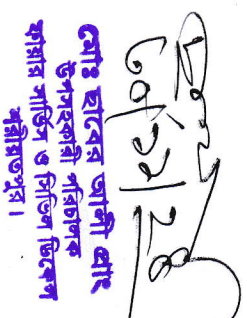 মোঃ ছাবের আলী খান
উপসহকারী পরিচালক
ফায়ার সার্ভিস ও সিভিল ডিফেন্স
শরীয়তপুর।